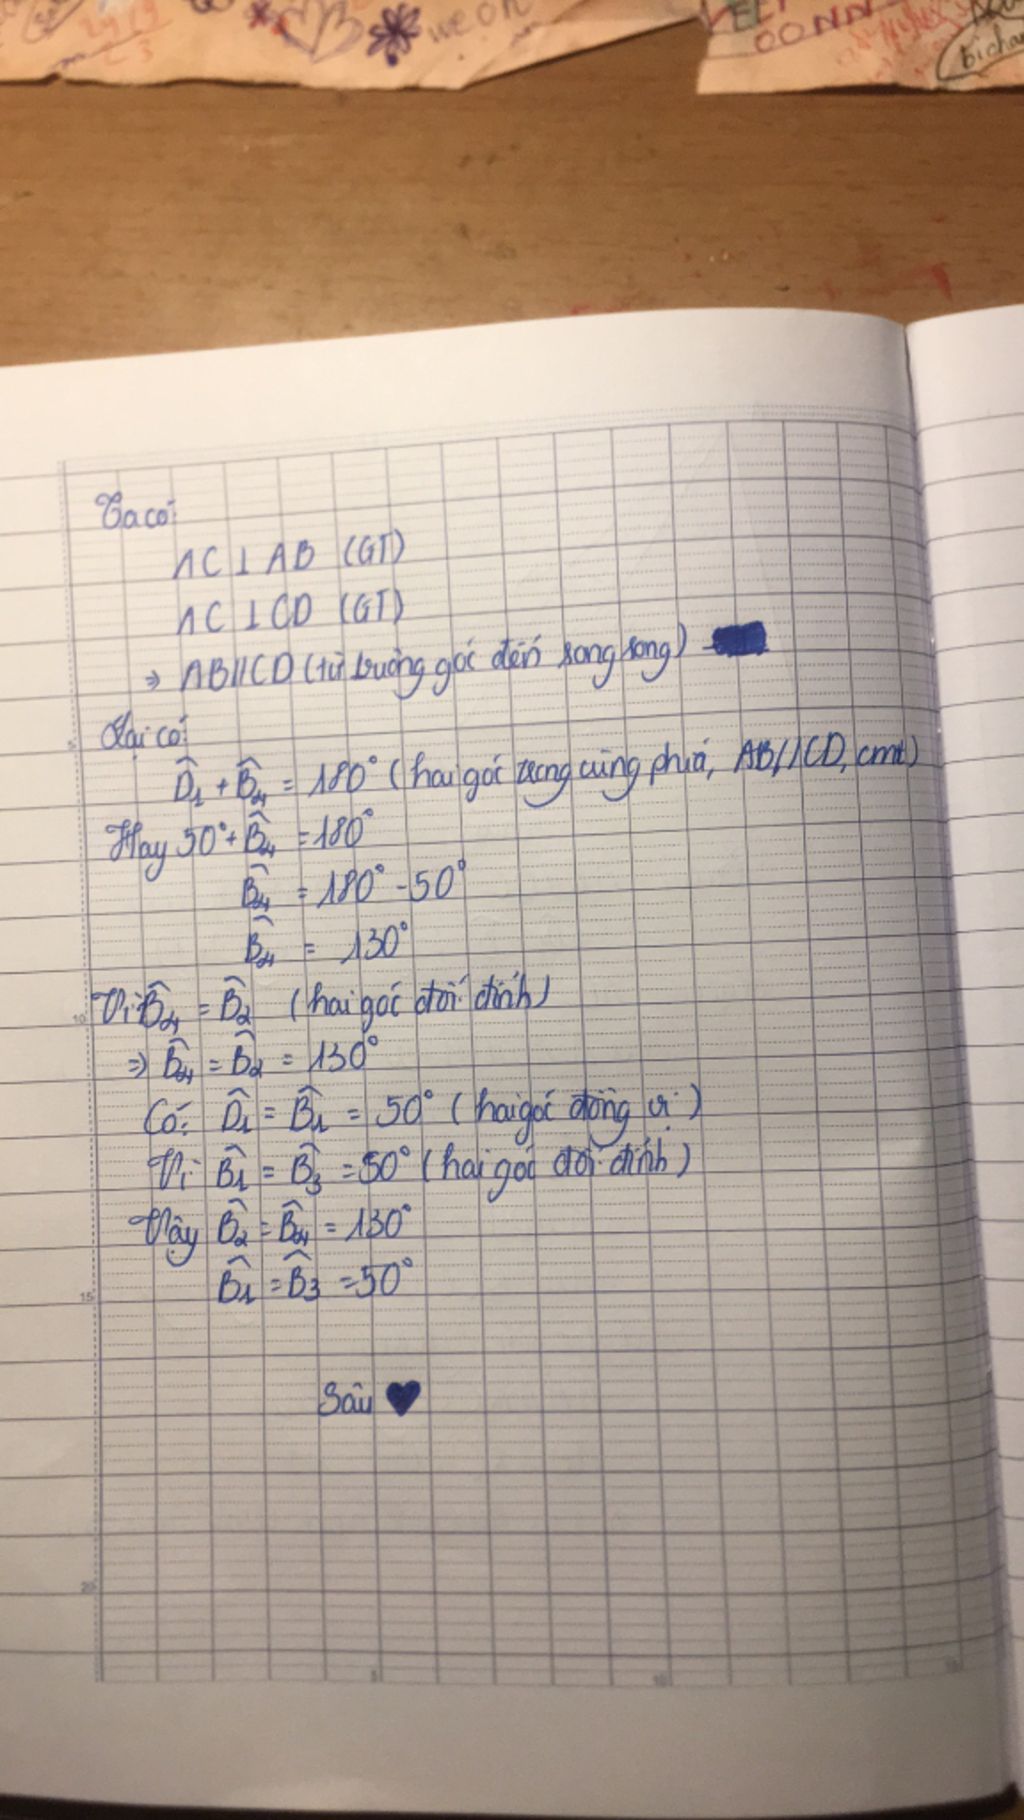 we on
OONN
bichan
Ta có:
AC ⊥ AB (GT)
AC ⊥ CD (GT)
⇒ AB//CD (từ vuông góc đến song song)
Lại có:
D̂₁ + B̂₄ = 180° (hai góc trong cùng phía, AB//CD, cmt)
Hay 50° + B̂₄ = 180°
B̂₄ = 180° - 50°
B̂₄ = 130°
Vì B̂₄ = B̂₂ (hai góc đối đỉnh)
⇒ B̂₄ = B̂₂ = 130°
Có: D̂₁ = B̂₁ = 50° (hai góc đồng vị)
Vì B̂₁ = B̂₃ = 50° (hai góc đối đỉnh)
Vậy B̂₂ = B̂₄ = 130°
B̂₁ = B̂₃ = 50°
Sâu ♥
5
10
15
20
5
10
15